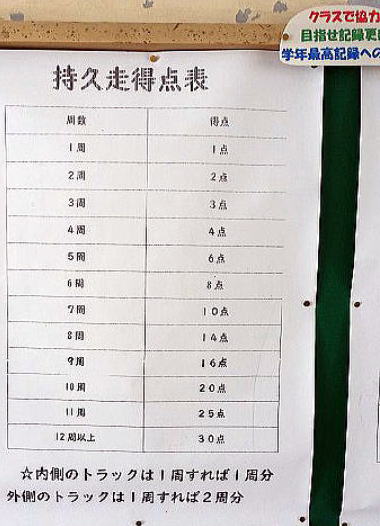 クラスで協力
目指せ記録更
学年最高記録への
持久走得点表
周数 得点
1周 1点
2周 2点
3周 3点
4周 4点
5周 6点
6周 8点
7周 10点
8周 14点
9周 16点
10周 20点
11周 25点
12周以上 30点
☆内側のトラックは1周すれば1周分
外側のトラックは1周すれば2周分